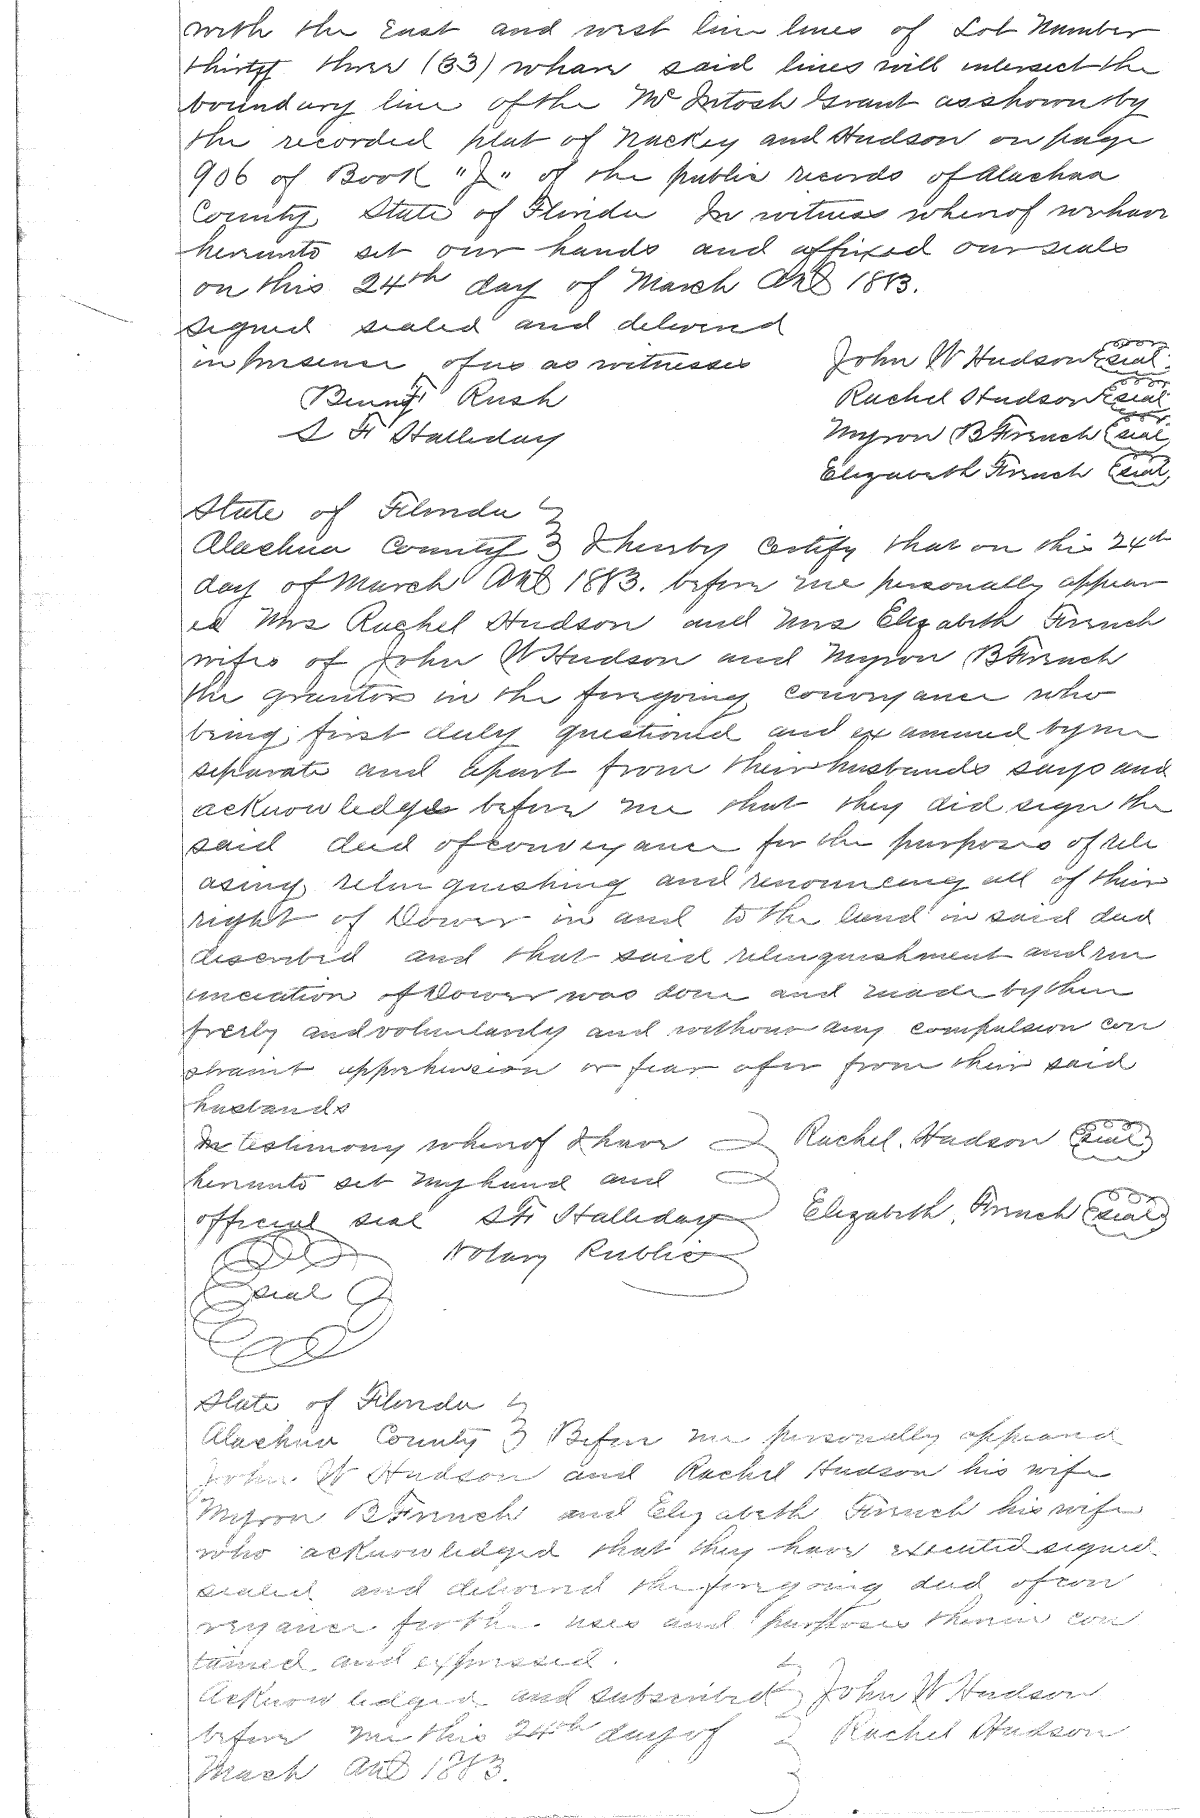 with the East and west line lines of Lot Number
thirty three (33) where said lines will intersect the
boundary line of the McIntosh Grant as shown by
the recorded plat of Mackey and Hudson on page
906 of Book "J" of the public records of Alachua
County State of Florida In witness whereof we have
hereunto set our hands and affixed our seals
on this 24th day of March AD 1883.
signed sealed and delivered
in presence of us as witnesses John W Hudson seal
Benj F Rush Rachel Hudson seal
S F Halliday Myron B French seal
Elizabeth French seal
State of Florida
Alachua County I hereby Certify that on this 24th
day of March AD 1883. before me personally appear
ed Mrs Rachel Hudson and Mrs Elizabeth French
wifes of John W Hudson and Myron B French
the grantors in the foregoing conveyance who
being first duly questioned and examined by me
separate and apart from their husbands says and
acknowledges before me that they did sign the
said deed of conveyance for the purposes of rele
asing, relinquishing and renouncing all of their
right of Dower in and to the land in said deed
described and that said relinquishment and ren
unciation of Dower was done and made by them
freely and voluntarily and without any compulsion con
straint apprehension or fear of or from their said
husbands
In testimony whereof I have Rachel. Hudson seal
hereunto set my hand and
official seal S F Halliday Elizabeth, French seal
Notary Public
seal
State of Florida
Alachua County Before me personally appeared
John. W Hudson and Rachel Hudson his wife
Myron B French and Elizabeth French his wife
who acknowledged that they have executed signed
sealed and delivered the foregoing deed of con
veyance for the uses and purposes therein con
tained, and expressed.
Acknowledged and subscribed John W Hudson
before me this 24th day of Rachel Hudson
March AD 1883.